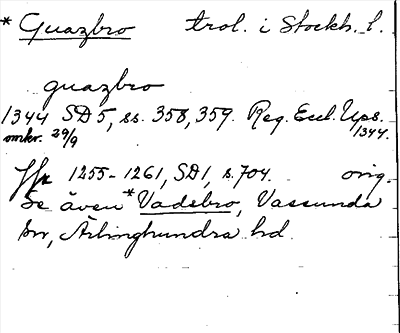 * Guazbro trol. i Stockh. l.
guazbro
1344 SD5, ss. 358, 359. Reg. Eccl. Ups.
omkr. 29/9 1344.
Jfr 1255-1261, SD1, s. 704. orig.
Se även *Vadsbro, Vassunda
sn, Ärlinghundra hd.